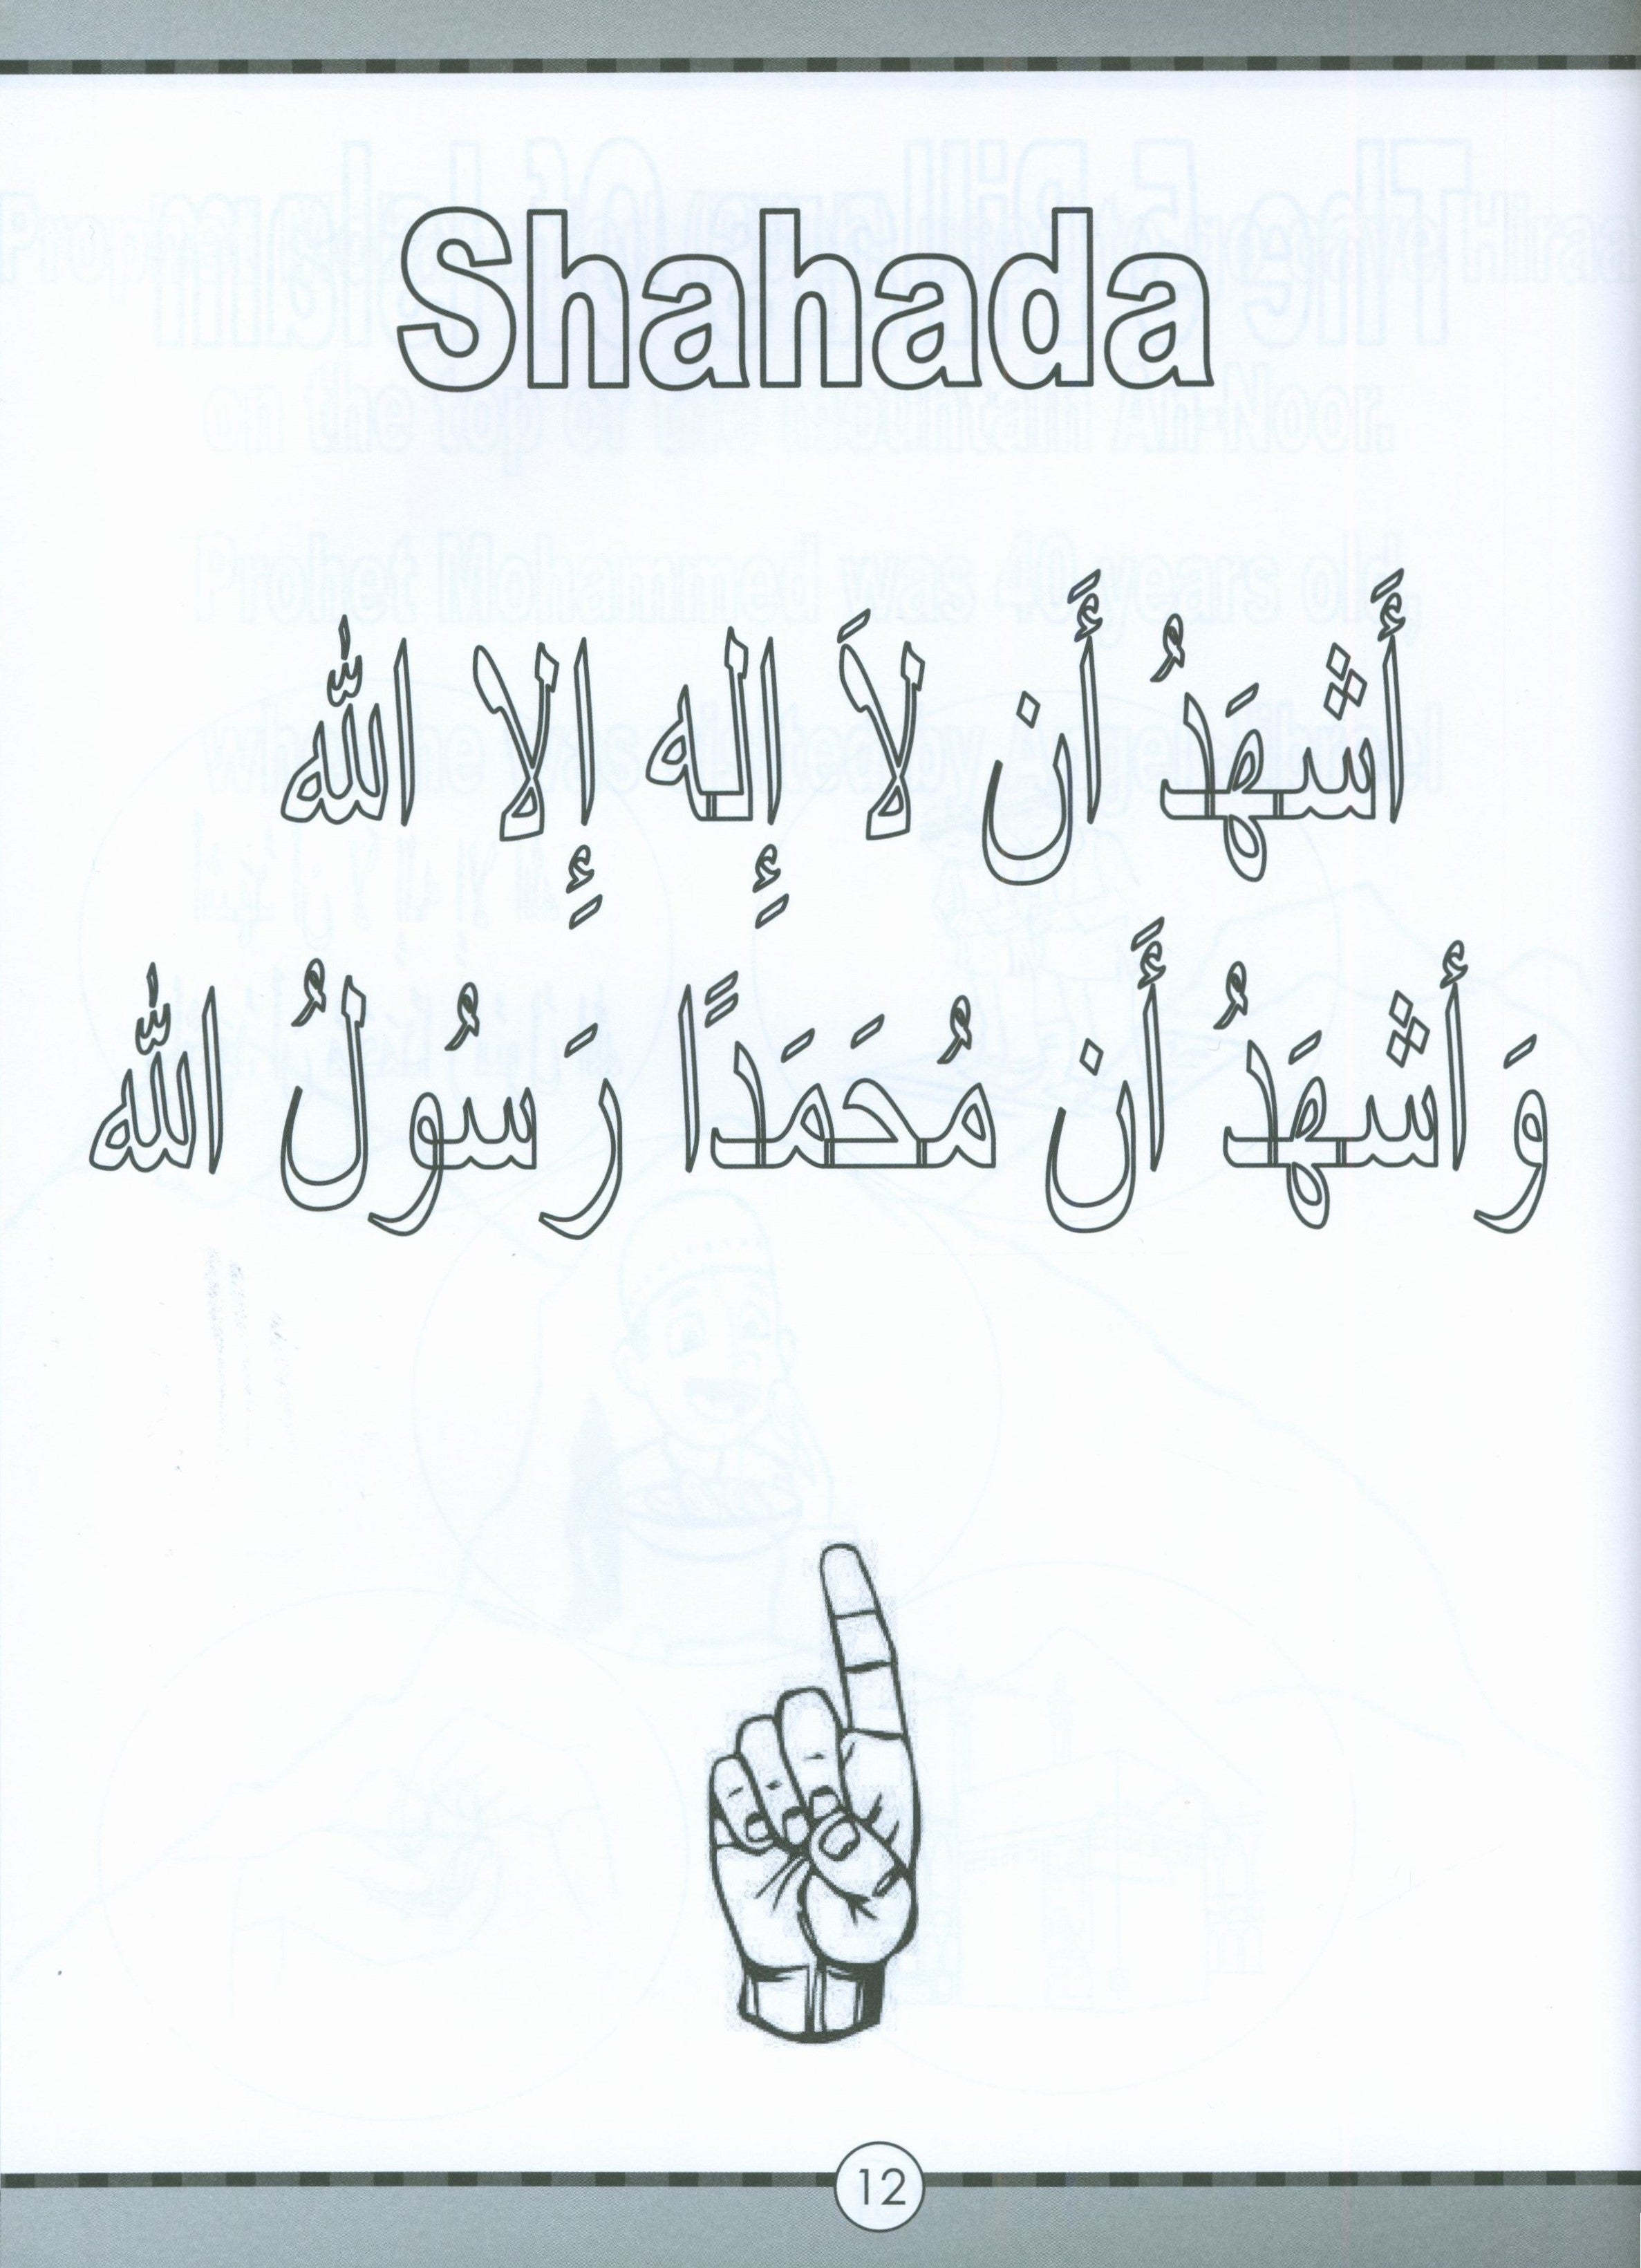 Shahada
أَشهَدُ أَن لاَ إِله إِلا الله
وَأشهَدُ أَن مُحَمَدًا رَسُولُ الله
12